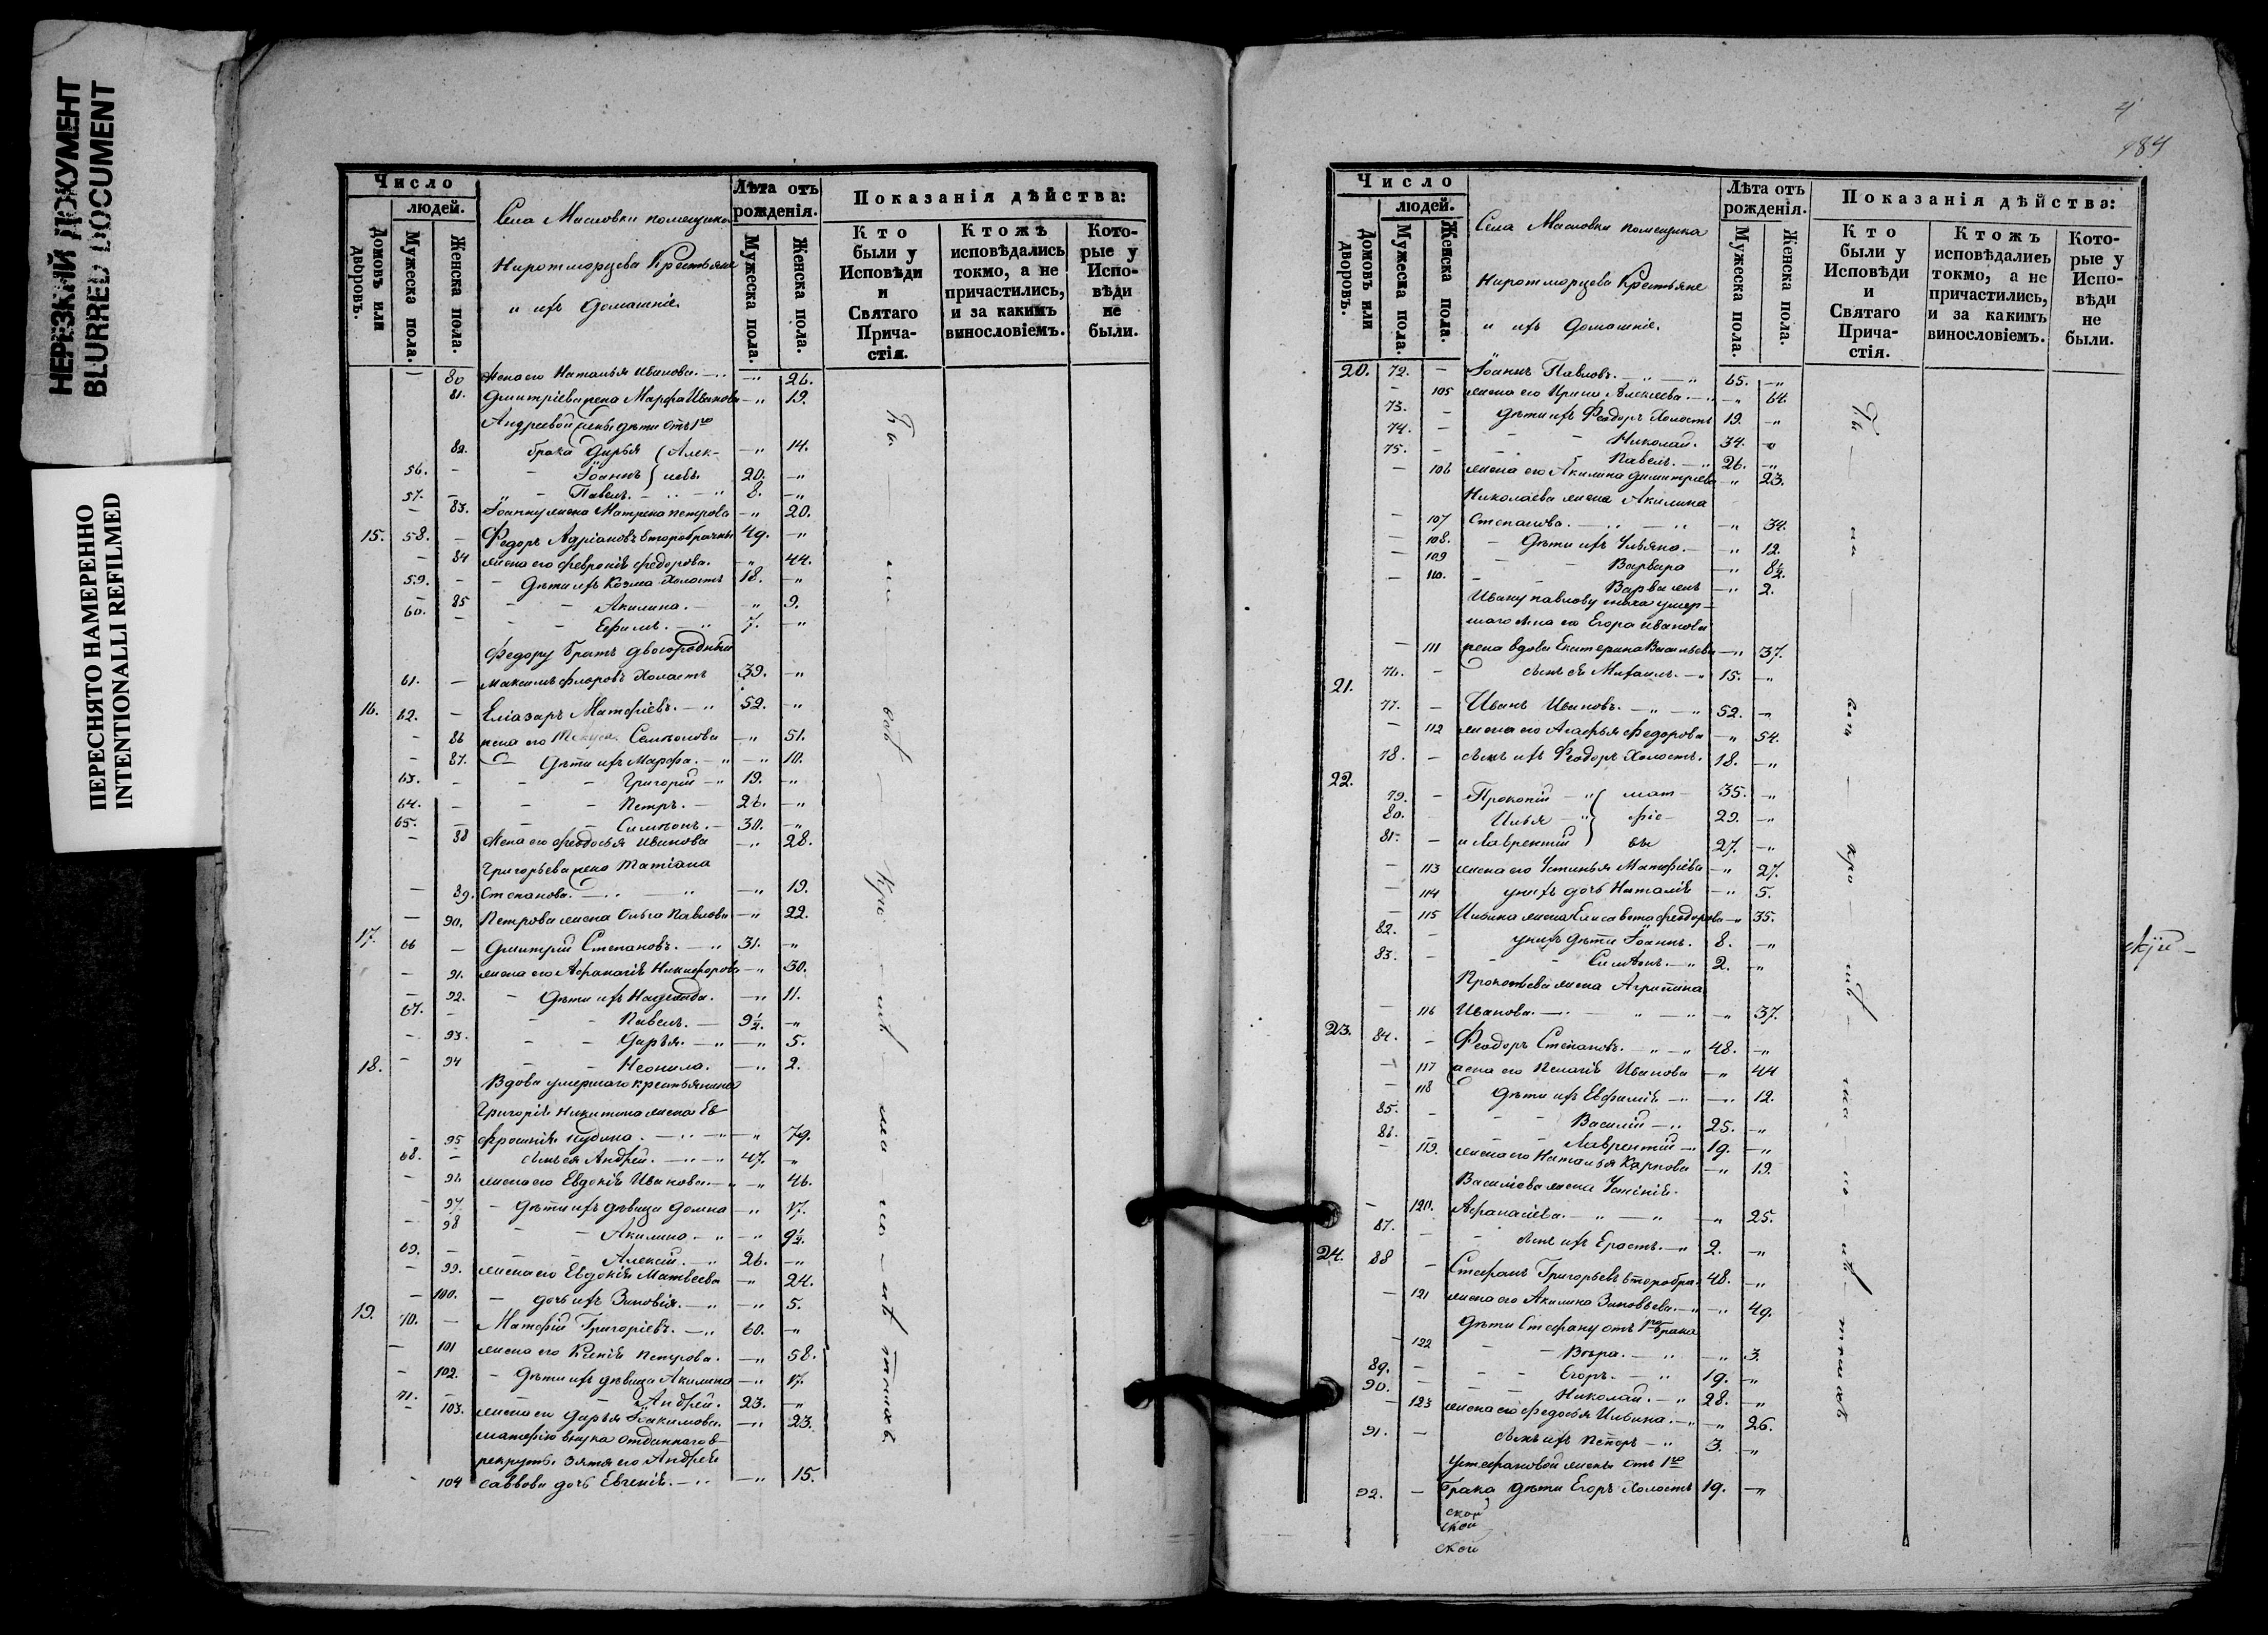 НЕРЕЗКИЙ ДОКУМЕНТ
BLURRED DOCUMENT
ПЕРЕСНЯТО НАМЕРЕННО
INTENTIONALLI REFILMED
Число
людей.
Домовъ или дворовъ.
Мужеска пола.
Женска пола.
Села Масловки помещика
Крестьяне
и ихъ Домашніе.
Лѣта отъ рожденія.
Мужеска пола.
Женска пола.
Показанія дѣйства:
Кто были у Исповѣди и Святаго Прича-стія.
Ктожъ исповѣдались токмо, а не причастились, и за какимъ винословіемъ.
Кото-рые у Испо-вѣди не были.
— 80 Жена его Наталья Иванова. — „ 26.
81. Дмитріева жена Марфа Иванова — „ 19.
Андреевой жены дѣти отъ 1го
82. брака Дарья (Алек- — „ 14.
56. — Іоаннъ } 20. — „
57. — „ — Павелъ. — „ 8. — „
— 83. Іоанну жена Матрена Петрова — „ 20.
15. 58. — Федоръ Адріановъ второбрачны 49. — „
— 84 жена его Февронія Федорова. — „ 44.
59. — Дѣти ихъ Козма Холостъ 18. — „
— 85 — — Акилина. — „ 9.
60. — — Ефимъ. — „ 7. — „
Федору братъ двоюродный
61. — Максимъ Флоровъ Холостъ 39. — „
16. 62. — Еліазаръ Матфіевъ. — „ 52. — „
— 86 жена его Семіонова — „ 51.
— 87. — Дѣти ихъ Марфа. — „ — „ 10.
63. — — Григорій — „ 19. — „
64. — — Петръ. — 26. — „
65. — — Симеонъ. — 30. — „
— 88 Жена его Феодосья Иванова — „ 28.
Григорьева жена Татіана
— 89. Степанова. — „ — „ 19.
— 90. Петрова жена Ольга Павлова — „ 22.
17. 66 — Дмитрій Степановъ. — „ 31. — „
— 91. жена его Афанасія Никифорова — „ 30.
— 92. — Дѣти ихъ Надежда. — „ 11.
67. — — Павелъ. — 9½. — „
— 93. — — Дарья. — „ — „ 5.
18. — 94 — — Неонила. — „ 2.
Вдова умершаго крестьянина
Григорія Никитина жена Ев-
— 95 фросинія — „ — „ 79.
68. — сынъ ея Андрей. — „ 47. — „
— 96 жена его Евдокія Иванова. — „ 46.
— 97. — Дѣти ихъ дѣвица Домна — „ 17.
— 98 — — Акилина — „ — „ 9½.
69. — — Алексій. — „ 26. — „
— 99. жена его Евдокія Матвеева — „ 24.
— 100. — дочь ихъ Зиновія. — „ — „ 5.
19. 70. — Матфій Григоріевъ. — „ 60. — „
— 101 жена его Ксенія Петрова. — „ 58.
— 102. — Дѣти ихъ дѣвица Акилина — „ 17.
71. — — Андрей. 23. — „
— 103. жена его Дарья Іоакимова. — „ 23.
Матфію внука отданнаго в-
рекруты зятя его Андрея
— 104 Саввова дочь Евгенія. — „ — „ 15.
4
Число
людей.
Домовъ или дворовъ.
Мужеска пола.
Женска пола.
Села Масловки помещика
Крестьяне
и ихъ Домашніе.
Лѣта отъ рожденія.
Мужеска пола.
Женска пола.
Показанія дѣйства:
Кто были у Исповѣди и Святаго Прича-стія.
Ктожъ исповѣдались токмо, а не причастились, и за какимъ винословіемъ.
Кото-рые у Испо-вѣди не были.
20. 72. — Іоаннъ Павловъ. — „ — „ 65. — „
— 105 жена его Ирина Алексеева. — „ 64.
73. — Дѣти ихъ Феодоръ Холостъ 19. — „
74. — — Николай. 34. — „
75. — — Павелъ. — „ 26. — „
— 106 жена его Акилина Димитріева — „ 23.
Николаева жена Акилина
— 107 Степанова. — „ — „ — „ 34.
— 108. — Дѣти ихъ Ульяна. — „ 12.
— 109 — Варвара — „ 8½.
— 110. — — — „ 2.
Ивану Павлову сноха умер-
шаго сына его Егора Иванова
— 111 жена вдова Екатерина Васильева — „ 37.
76. — сынъ ея Михаилъ. — „ 15. — „
21. 77. — Иванъ Ивановъ. — „ — „ 52. — „
— 112 жена его Агафья Федорова — „ 54.
78. — сынъ ихъ Феодоръ Холостъ. 18. — „
22. 79. — Прокопій — „ { мат- 35. — „
80. — Илья — „ фіе- 29. — „
81. — и Лаврентій } вы 27. — „
— 113 жена его Устинья Матфіева — „ 27.
— 114 у нихъ дочь Наталія — „ 5.
— 115 Ильина жена Елисавета Феодорова — „ 35.
82. — у нихъ дѣти Іоаннъ. 8. — „
83. — — Симеонъ. — „ 2. — „
Прокопьева жена Агрипина
— 116 Иванова. — „ — „ — „ 37.
23. 84. — Феодоръ Степановъ. — „ — „ 48. — „
— 117 жена его Пелагія Иванова — „ 44
— 118 Дѣти ихъ Евфимія — „ — „ 12.
85. — — Василій — „ 25. — „
86. — — Лаврентій — „ 19. — „
— 119. жена его Наталья Карпова — „ 19.
Василіева жена Устинія
— 120. Афанасіева. — „ — „ — „ 25.
87. — сынъ ихъ Ерастъ. — „ 2. — „
24. 88 — Стефанъ Григорьевъ второбра. 48. — „
— 121 жена его Акилина Зиновьева. — „ 49.
Дѣти Стефану отъ 1го брака
— 122 — Вѣра. — „ — „ 3.
89. — — Егоръ. — „ 19. — „
90. — — Николай. — „ 28. — „
— 123 жена его Федосья Ильина. — „ 26.
91. — сынъ ихъ Петръ — „ 3. — „
У Стефановой жены отъ 1го
92. — брака дѣти Егоръ Холостъ 19. — „
ской
ской
ской